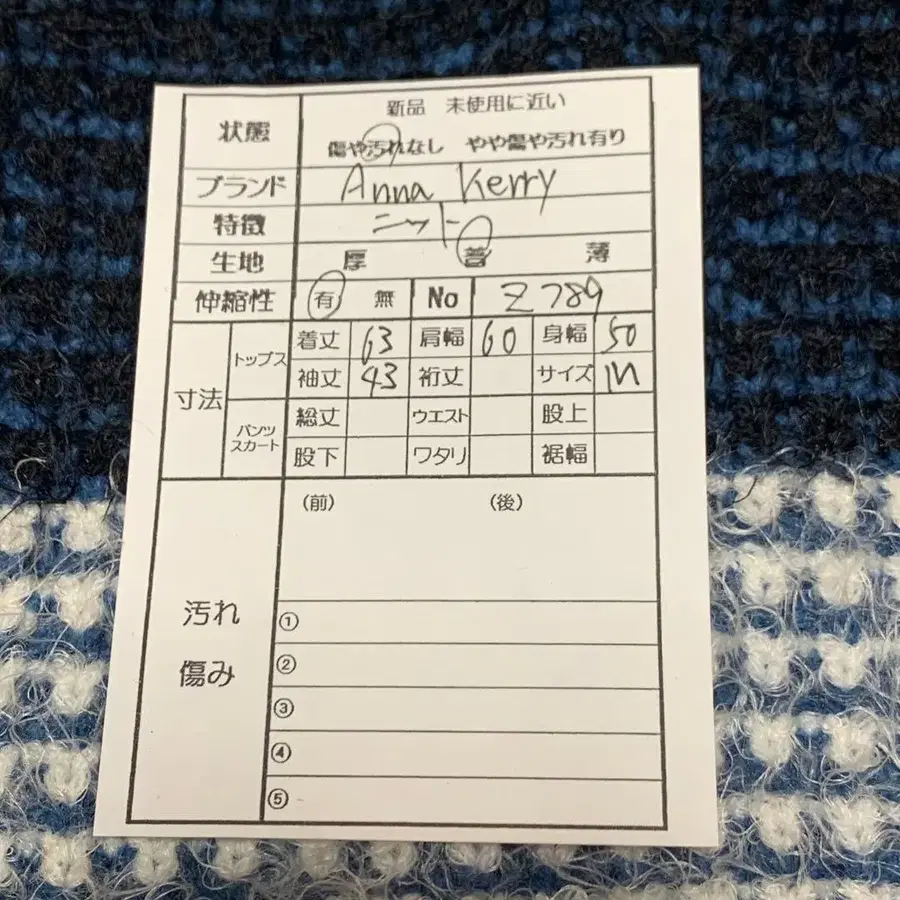 状態 新品 未使用に近い
傷や汚れなし やや傷や汚れ有り
ブランド Anna Kerry
特徴 ニット
生地 厚 普 薄
伸縮性 有 無 No Z789
寸法
トップス 着丈 63 肩幅 60 身幅 50
袖丈 43 裄丈 サイズ M
パンツ
スカート
総丈 ウエスト 股上
股下 ワタリ 裾幅
汚れ
傷み
(前) (後)
①
②
③
④
⑤